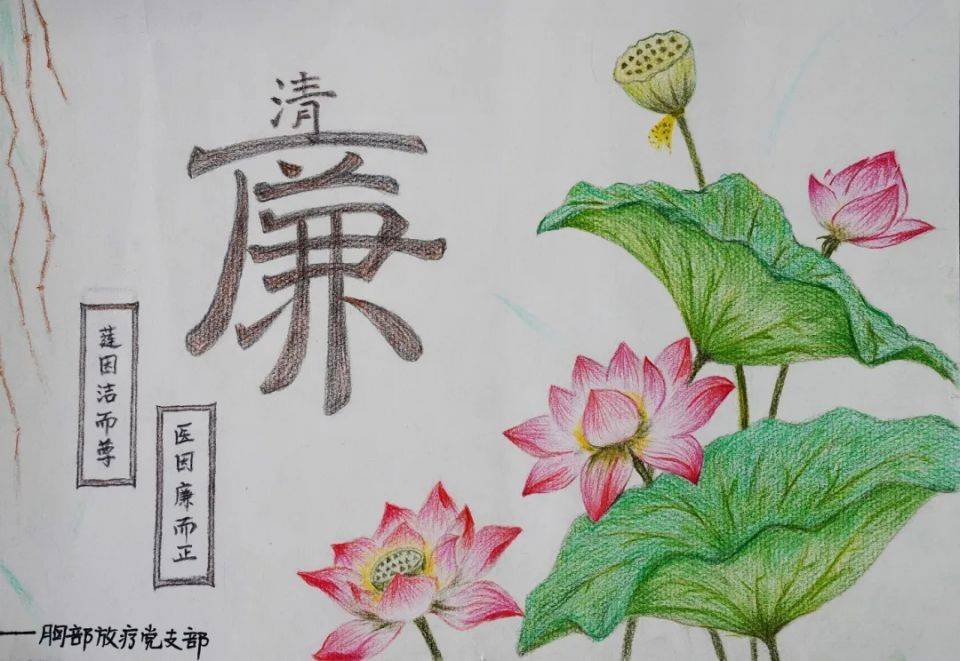 清
廉
莲因洁而尊
医因廉而正
——胸部放疗党支部